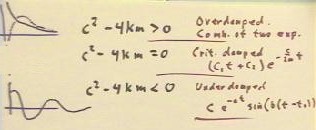 c² - 4km > 0 Overdamped.
Comb. of two exp.
c² - 4km = 0 Crit. damped
(c₁t + c₂) e^(-c/2m t)
c² - 4km < 0 Underdamped
c e^(-at) sin(b(t - t₀))